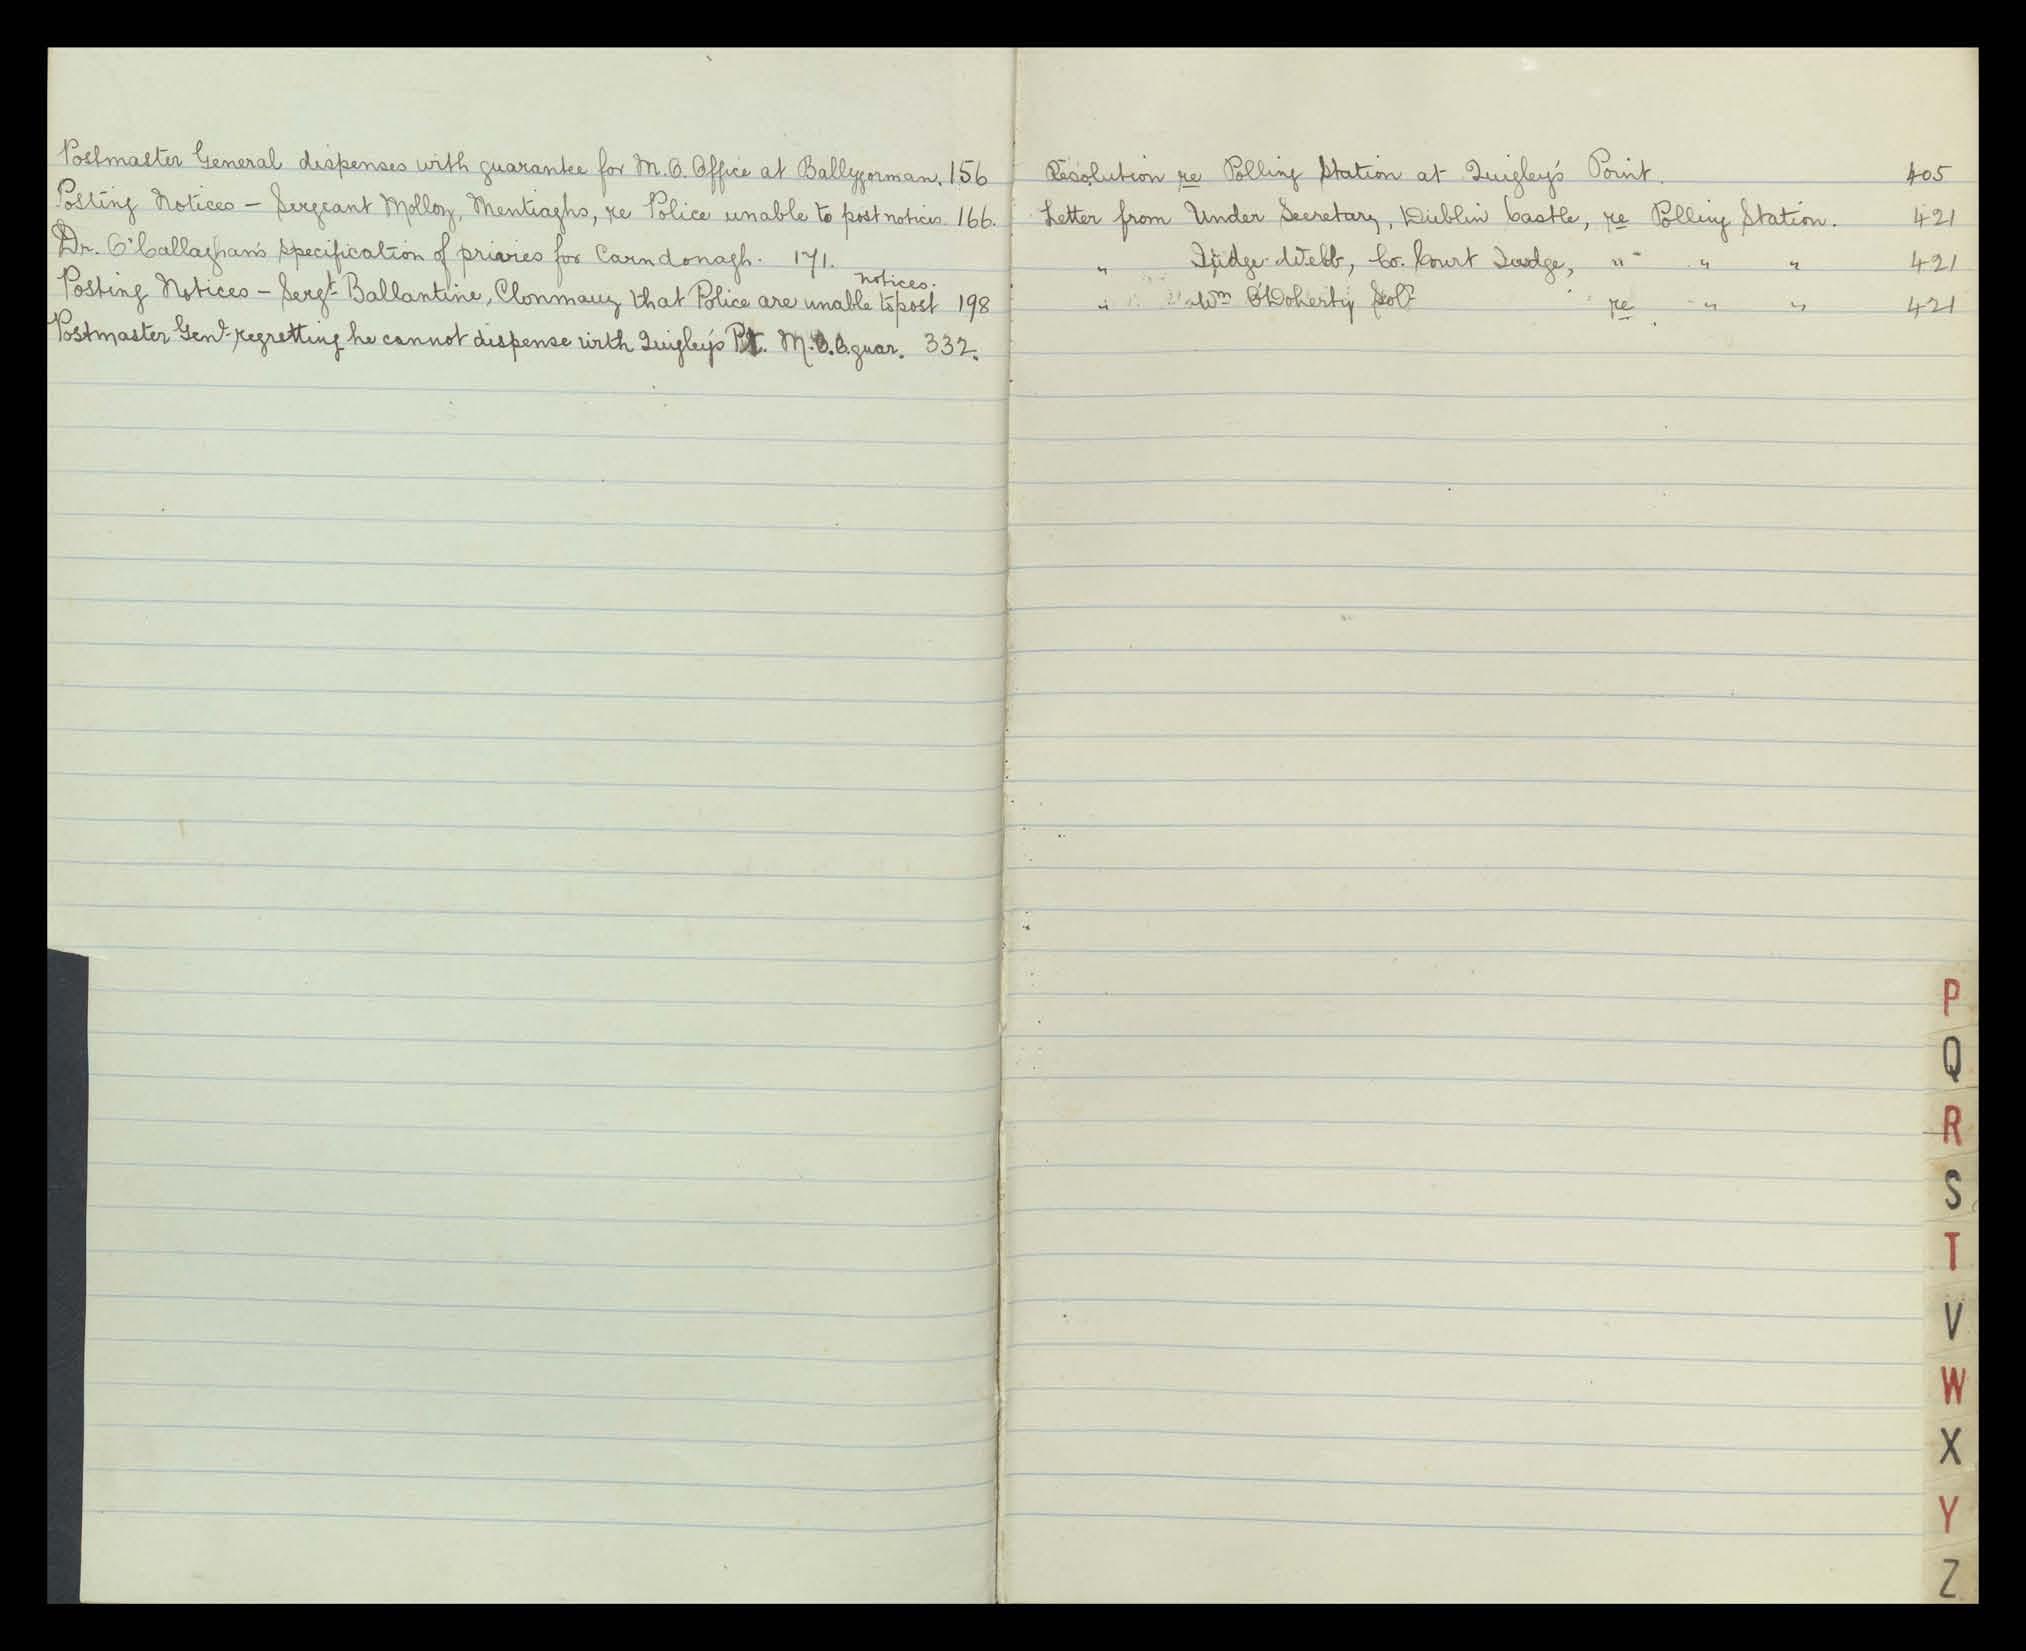 Postmaster General dispenses with guarantee for M.O. Office at Ballygorman. 156
Posting Notices - Sergeant Molloy, Mentiaghs, re Police unable to post notices. 166.
Dr. O'Callaghan's specification of privies for Carndonagh. 171.
notices.
Posting Notices - Sergt Ballantine, Clonmany that Police are unable to post 198
Postmaster Genl regretting he cannot dispense with Quigley's Pt. M.O.O. guar. 332.
Resolution re Polling Station at Quigley's Point. 405
Letter from Under Secretary, Dublin Castle, re Polling Station. 421
" Judge Webb, Co. Court Judge, " " " 421
" " Wm O'Doherty Solr re " " 421
P
Q
R
S
T
V
W
X
Y
Z